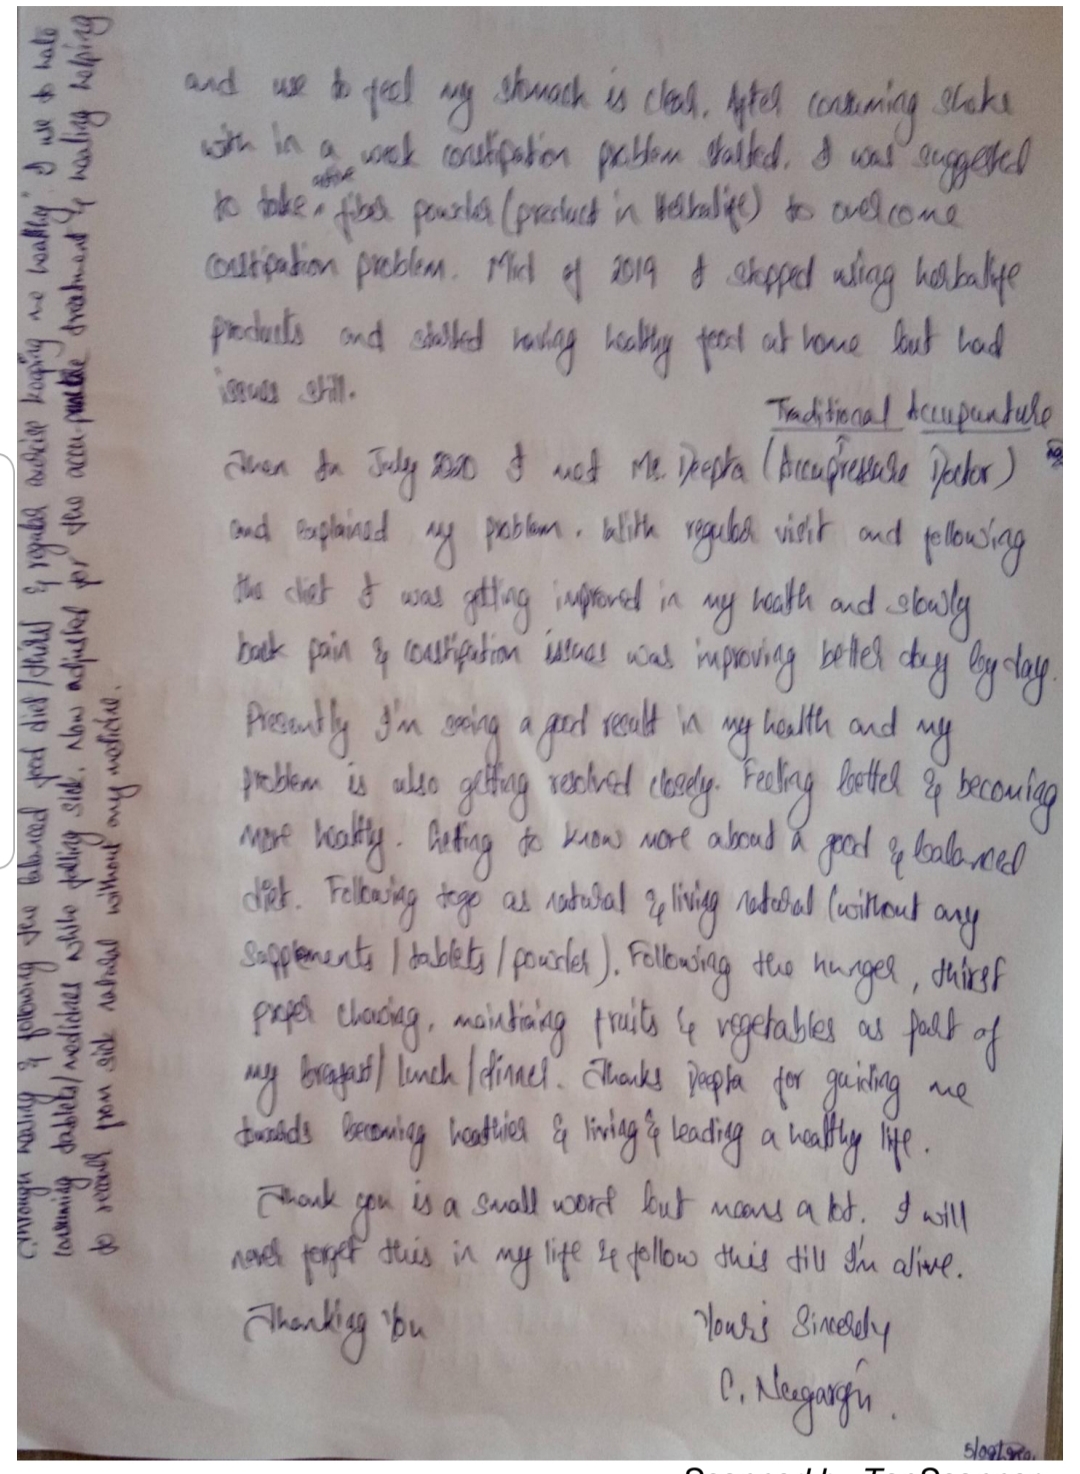 and use to feel my stomach is clear. After consuming shake
with in a week constipation problem started. I was suggested
to take active fiber powder (product in Herbalife) to overcome
constipation problem. Mid of 2019 I stopped using herbalife
products and started having healthy food at home but had
issues still.
Traditional Accupunture
Then In July 2020 I met Ms. Deepta (Accupressure Doctor)
and explained my problem. With regular visit and following
the diet I was getting improved in my health and slowly
back pain & constipation issues was improving better day by day.
Presently I'm seeing a good result in my health and my
problem is also getting resolved closely. Feeling better & becoming
more healthy. Getting to know more about a good & balanced
diet. Following to go as natural & living natural (without any
supplements / tablets / powder). Following the hunger, thirst
proper chewing, maintining fruits & vegetables as part of
my breafast / lunch / dinner. Thanks Deepta for guiding me
towards becoming healthier & living & leading a healthy life.
Thank you is a small word but means a lot. I will
never forget this in my life & follow this till I'm alive.
Thanking You Yours Sincerely
C.
Through healing & following the balanced food diet / thirst & regular exercise keeping me healthy. I use to hate
consuming tablets/medicines while falling sick. Now adjusted for the accu-puncture treatment & healing helping
to recover from sick natural without any medicine.